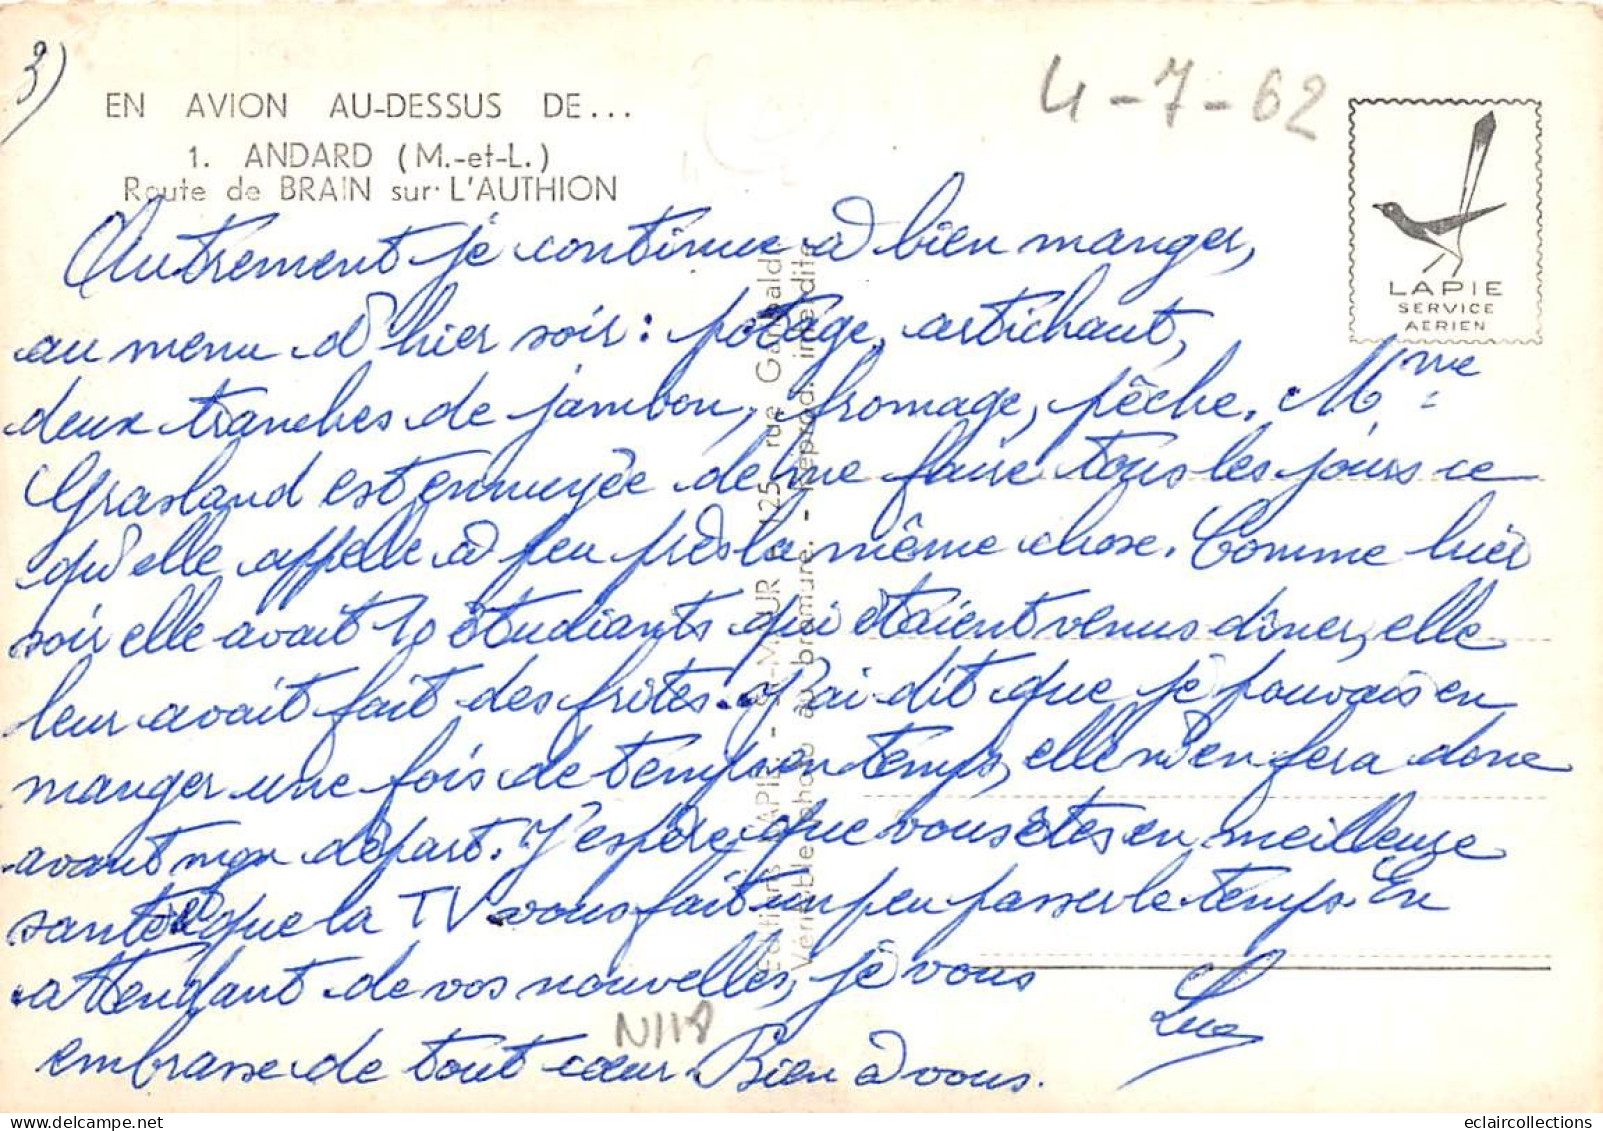 3)
4-7-62
EN AVION AU-DESSUS DE...
1. ANDARD (M.-et-L.)
Route de BRAIN sur L'AUTHION
LAPIE
SERVICE
AÉRIEN
Autrement je continue à bien manger,
au menu d'hier soir : potage, artichaut,
deux tranches de jambon, fromage, pêche. Mme
Grasland est ennuyée de me faire tous les jours ce
qu'elle appelle à peu près la même chose. Comme hier
soir elle avait 10 étudiants qui étaient venus dîner, elle
leur avait fait des frites. J'ai dit que je pouvais en
manger une fois de temps en temps, elle m'en fera donc
avant mon départ. J'espère que vous êtes en meilleure
santé que la TV vous fait un peu passer le temps. En
attendant de vos nouvelles, je vous
embrasse de tout cœur. Bien à vous.
Luc
N118
Editions LAPIE - St-MAUR - 125, rue Garibaldi
Véritable photo au bromure. - Reprod. interdite
eclaircollections